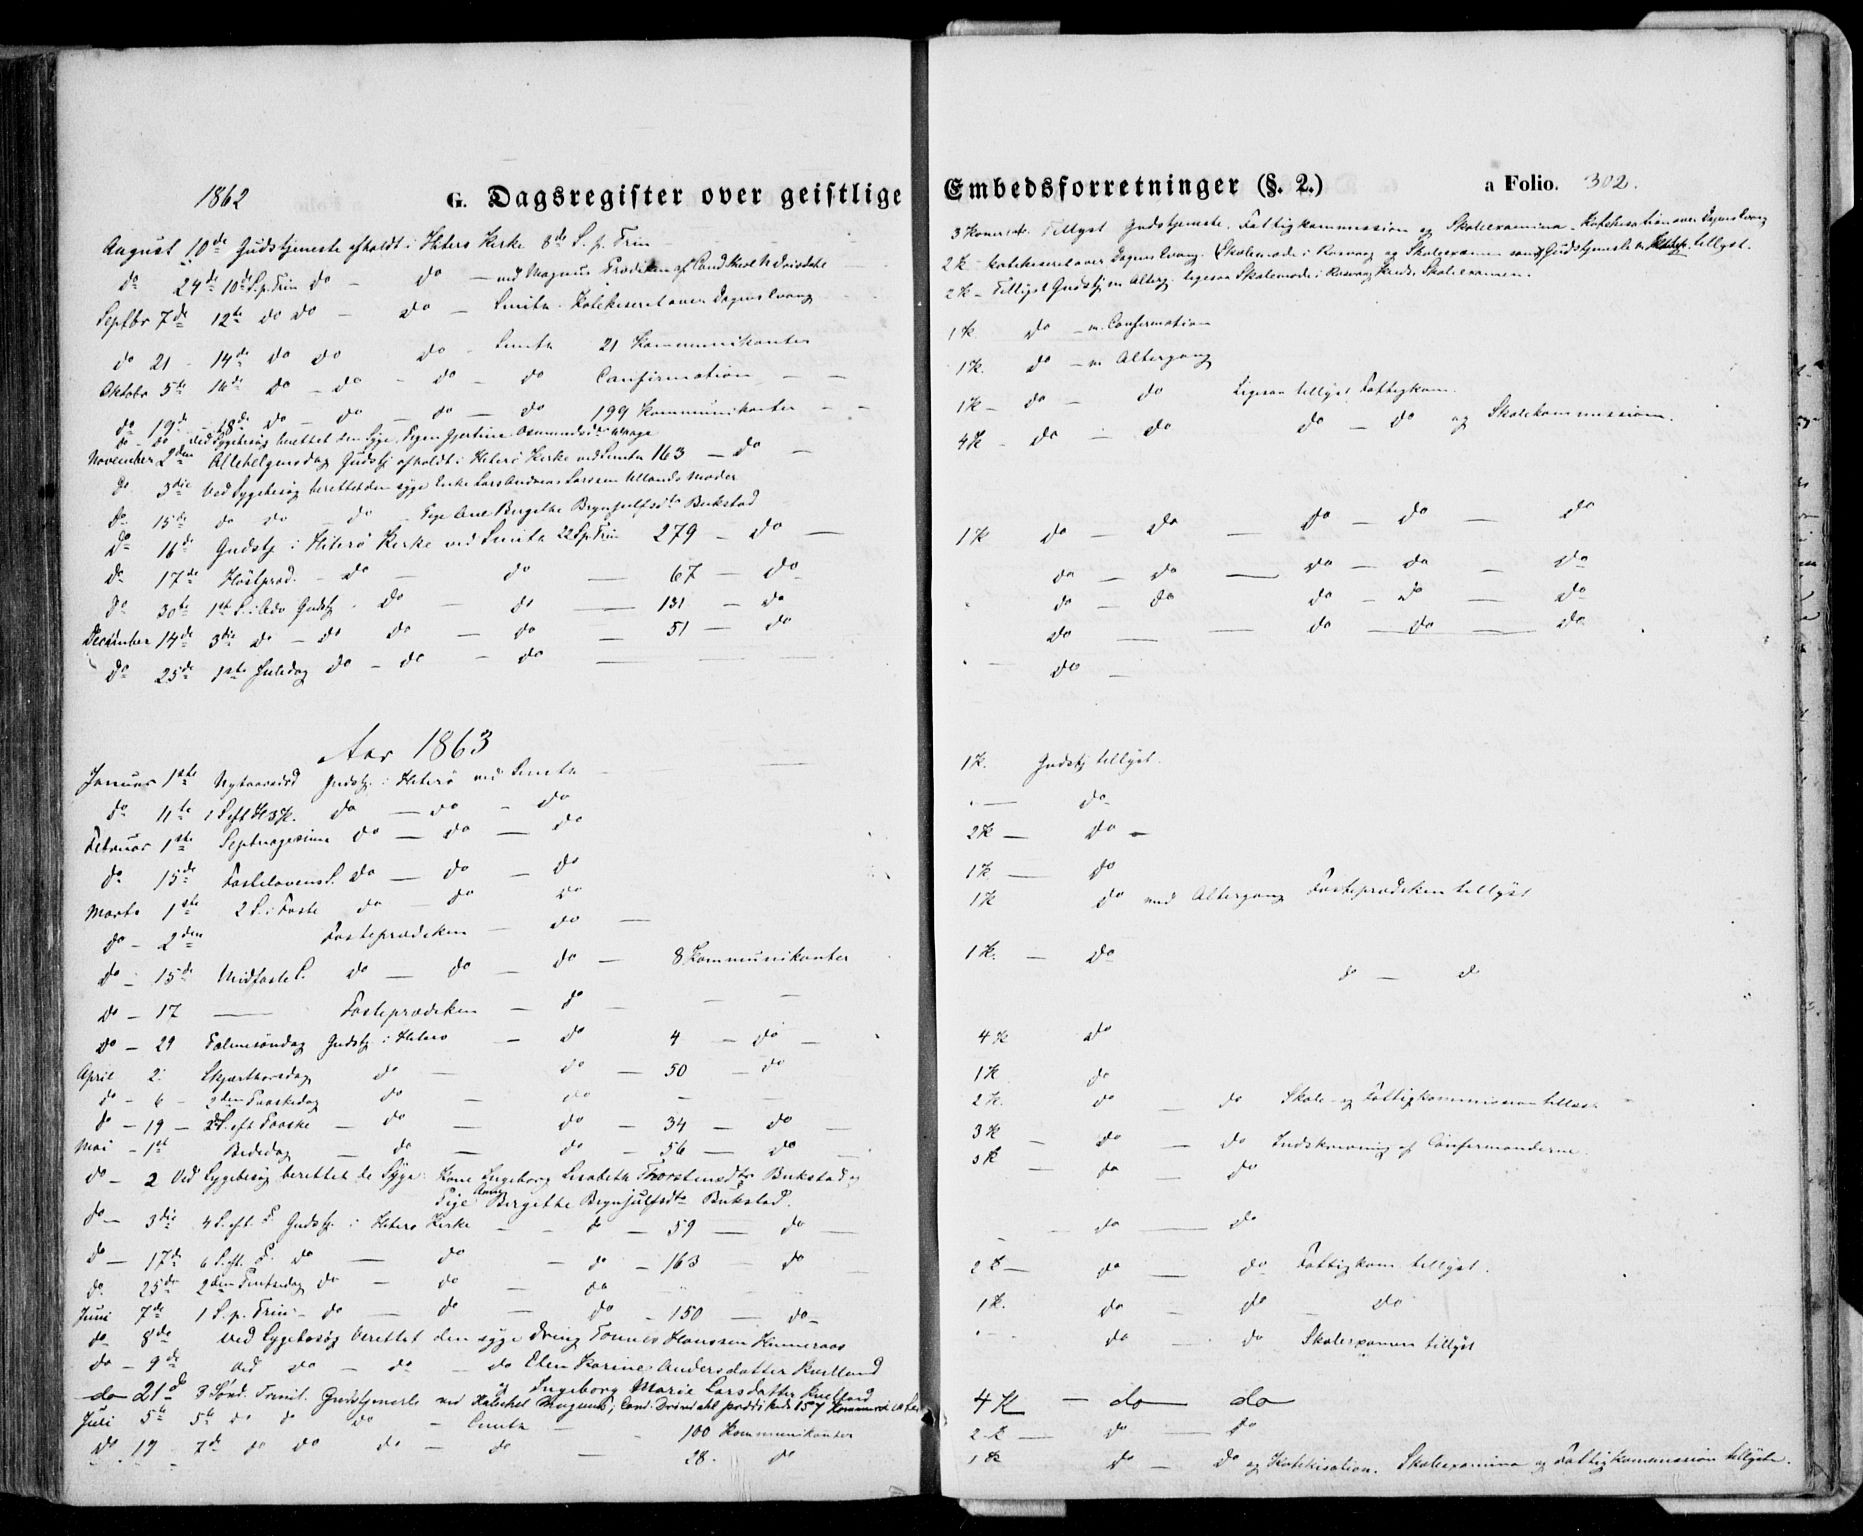 1862
G. Dagsregister over geistlige
August 10de Gudstjeneste afholdt i Hiterø Kirke 8de S. p. Trin
do 24de 10de S p. Trin do - do - ved Magnus Prædiken af Cand theol
Septbr 7de 12te do do - do - Smith. Katekiseret over Dagens Evang
do 21 - 14de do do do - Smith 21 Kommunikanter
Oktobr 5te 16de do - do - do - do Confirmation - -
do 19de - 18de do - do - do - do 199 Kommunikanter - -
do - do ved Sygebesøg berettet den Syge, Pigen Gjertine Osmundsdr
November 2den Allehelgensdag Gudstj afholdt i Hiterö Kirke ved Smith 163 - do -
do 3die Ved Sygebesøg berettet den syge Enke Lars Andreas Larssen Ullands Moder
do 15de do do - do - Pige Ane Birgithe Brynjulfsdtr Bukstad
do 16de Gudstj i Hiterö Kirke ved Smith 22 S p Trin 279 - do -
do 17de Höstpræd. - do - do - 67 - do
do 30te 1ste S. i Adv Gudstj - do - do - 131 - do
December 14de 3die do - do do - do - 51 - do
do 25de 1ste Juledag do - do - do -
Aar 1863
Januar 1ste Nytaarsd Gudstj. i Hiterö ved Smith
do 11te 1 S eft H3K. do - do - do
Februar 1ste Septuagesima do - do - do
do 15de Fastelavens S. do - do - do
Marts 1ste 2 S. i Faste do - do do
do - 2den Fasteprædiken - do -
do - 15de Midfaste S. do - do - do - 8 Kommunikanter
do - 17 - Fasteprædiken - do -
do - 29 Palmesöndag Gudstj. i Hiterö - do 4 - do -
April 2. Skjærthorsdag do - do - 50 - do
do - 6 - 2den Paaskedag do - do - -
do - 19 - 2 S. eft Paaske - do - do - 34 - do -
Mai - 1ste Bededag - do - do - 56 - do
do - 2 Ved Sygebesøg berettet de Syge: Kone Ingeborg Lisabeth Thorstensdtr Bukstad og
Pige Anne Birgithe Brynjulfsdtr Bukstad.
do - 3die 4 S. eft. P. Gudstj. i Hiterö Kirke - - do - 59 - do -
do - 17de 6 S. eft. P. do - do - do - 163 - do
do 25de 2den Pintsedag do - do - do
Juni 7de 1 S. p. Trin - do - do - do - 150 - do
do 8de ved Sygebesøg berettet den syge Dreng Tønnes Hanssen
do - 9de ved do - do - do Elen Karine Andersdatter
og Ingeborg Marie Larsdatter
do 21de 3 Sönd. Trinit. Gudstjeneste ved Magnus; Cand. prædikede 157 Kommunikanter
Juli 5te 5te do do do - Smith - - 100 Kommunikanter
do. 19 7de do do do - do - 28. do
Embedsforretninger (§. 2.)
a Folio. 302.
3 Konerindl. Tillyst Gudstjeneste, Fattigkommission og Skoleexamina. Katekisation over Dagens Evang
2 K - katekiseret over Dagens Evang. Skolemøde i Rasvaag og Skoleexamen samt Gudstjeneste m. tillyst.
2 K - Tillyst Gudstj m. Alterg. ligesaa Skolemøde i Rasvaag Kreds, Skoleexamen.
1 K do - m. Confirmation
1 K. do - m Altergang
1 K - do - do Ligesaa tillyst Fattigkom.
4 K - do - do do - do og Skolekommission.
1 K do - do - do - do - do
do - do - do - do - do
do - do do - do - do
do - - do - do - do
- do -
1 K. Gudstj tillyst.
- do
2 K - do -
1 K - do
1 K do med Altergang Fasteprædiken tillyst
1 K. - do
do - do
4 K do
1 K do
2 K. do - do Skole- og Fattigkommission tillyst
3 K - do - do Indskrivning af Confirmanderne.
3 K - do - do
- do - do
2 K - do - do Fattigkom. tillyst.
1 K. do - do - do
- do - do Skolexamen tillyst
4 K - do do
2 K - do - do
1 K do - do og Katekisation. Skoleexamina og Fattigkommission tillyste.